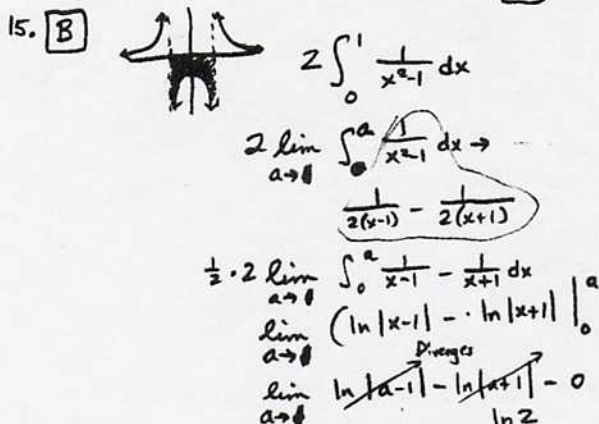 15. B
2 ∫₀¹ 1/(x²-1) dx
2 lim a→1 ∫₀ᵃ 1/(x²-1) dx →
1/(2(x-1)) - 1/(2(x+1))
1/2 · 2 lim a→1 ∫₀ᵃ 1/(x-1) - 1/(x+1) dx
lim a→1 (ln |x-1| - · ln |x+1| |₀ᵃ
Diverges
lim a→1 ln |a-1| - ln |a+1| - 0
ln 2